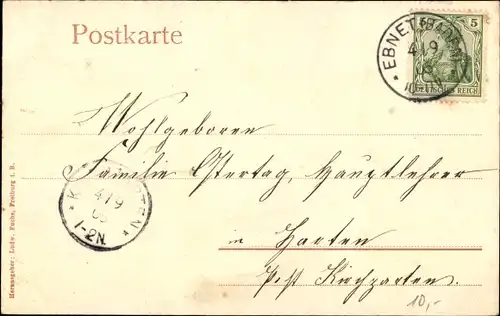 Postkarte
5
EBNET (BADEN)
4/9
DEUTSCHES REICH
Wohlgeboren
Familie Ostertag, Hauptlehrer
in Harten
Post Kirchzarten.
4/9
1-2N.
10,-
Herausgeber: Ludw. Fuchs, Freiburg i. B.